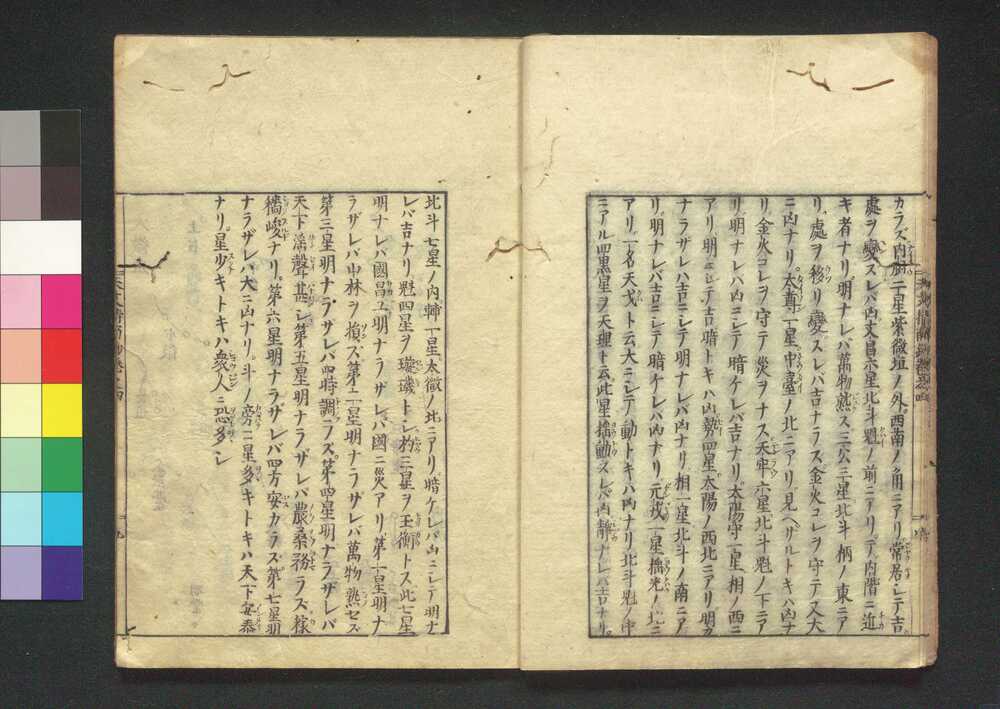 カラズ內厨二星紫微垣ノ外西南ノ角ニアリ常居シテ吉
處ヲ變スレバ凶文昌六星北斗魁ノ前ニアリテ內階ニ近
キ者ナリ明ナレバ萬物熟ス三公三星北斗柄ノ東ニア
リ處ヲ移リ變スレバ吉ナラス金火コレヲ守テ又大
ニ凶ナリ太尊一星中臺ノ北ニアリ見ヘザルトキハ凶ナ
リ金火コレヲ守テ災ヲナス天牢六星北斗魁ノ下ニア
リ明ナレハ凶ニシテ暗ケレバ吉ナリ太陽守一星相ノ西ニ
アリ明ニシテ吉暗トキハ凶勢四星太陽ノ西北ニアリ明カ
ナラザレハ吉ニシテ明ナレバ凶ナリ相一星北斗ノ南ニア
リ明ナレバ吉ニシテ暗ケレバ凶ナリ元戈一星搖光ノ北ニ
アリ一名天戈ト云大ニシテ動トキハ凶ナリ北斗魁ノ中
ニアル四黒星ヲ天理ト云此星搖動スレバ凶靜ナレバ吉ナリ
北斗七星ノ內輔一星太微ノ北ニアリ暗ケレバ凶ニシテ明ナ
レバ吉ナリ魁四星ヲ璇璣トシ杓三星ヲ玉衡トス此七星
明ナレバ國昌工明ナラザレバ國ニ災アリ第一星明ナ
ラザレバ山林ヲ損ズ第二星明ナラザレバ萬物熟セズ
第三星明ナラザレバ四時調ラズ第四星明ナラザレバ
天下淫聲甚シ第五星明ナラザレバ農桑務ラズ稼
穡峻ナリ第六星明ナラザレバ四方安カラズ第七星明
ナラザレバ大ニ凶ナリ斗ノ旁ニ星多キトキハ天下安泰
ナリ星少キトキハ衆人ニ恐多シ